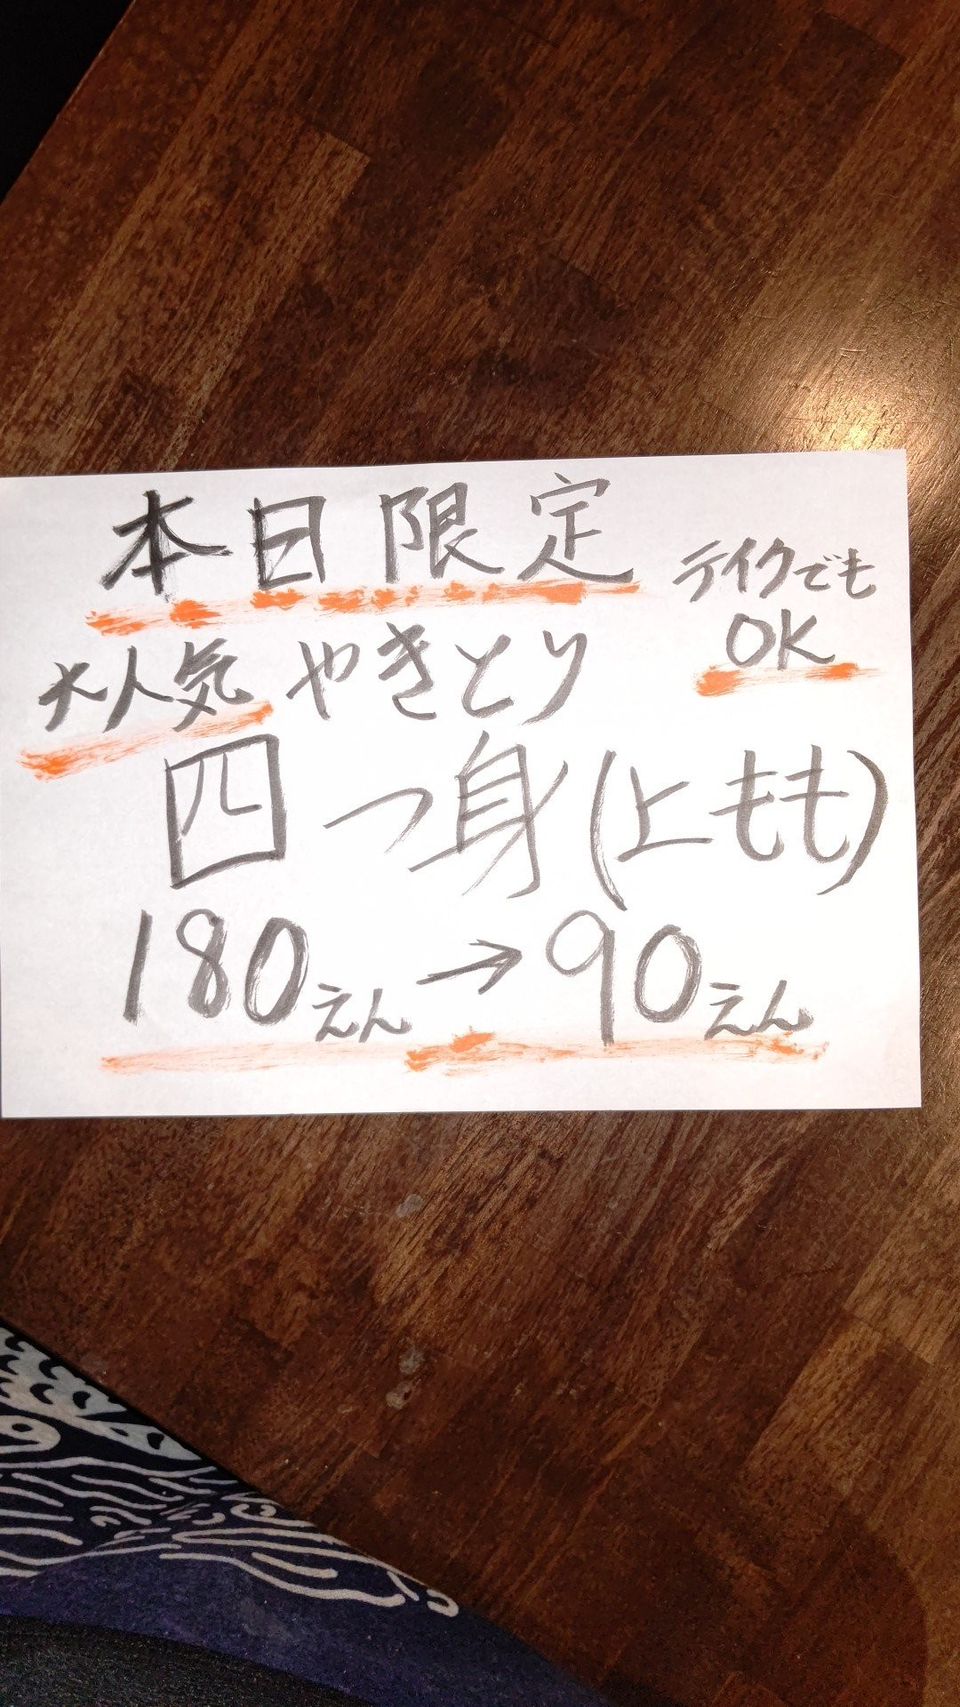 本日限定
テイクでも
OK
大人気 やきとり
四つ身(上もも)
180えん→90えん